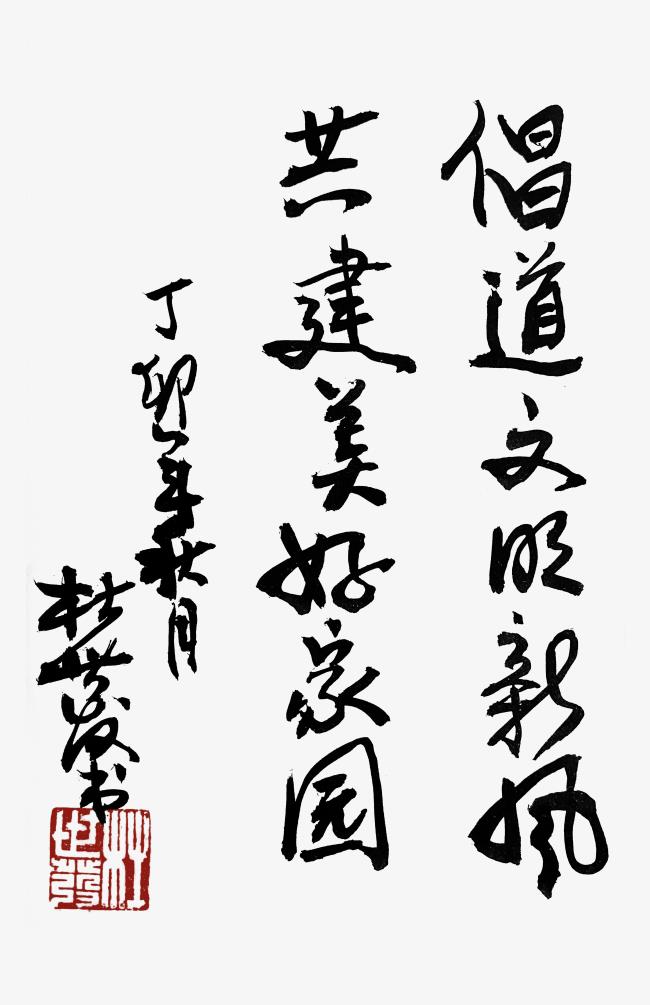 倡道文明新风
共建美好家园
丁卯年秋月
杜世发书
杜世發